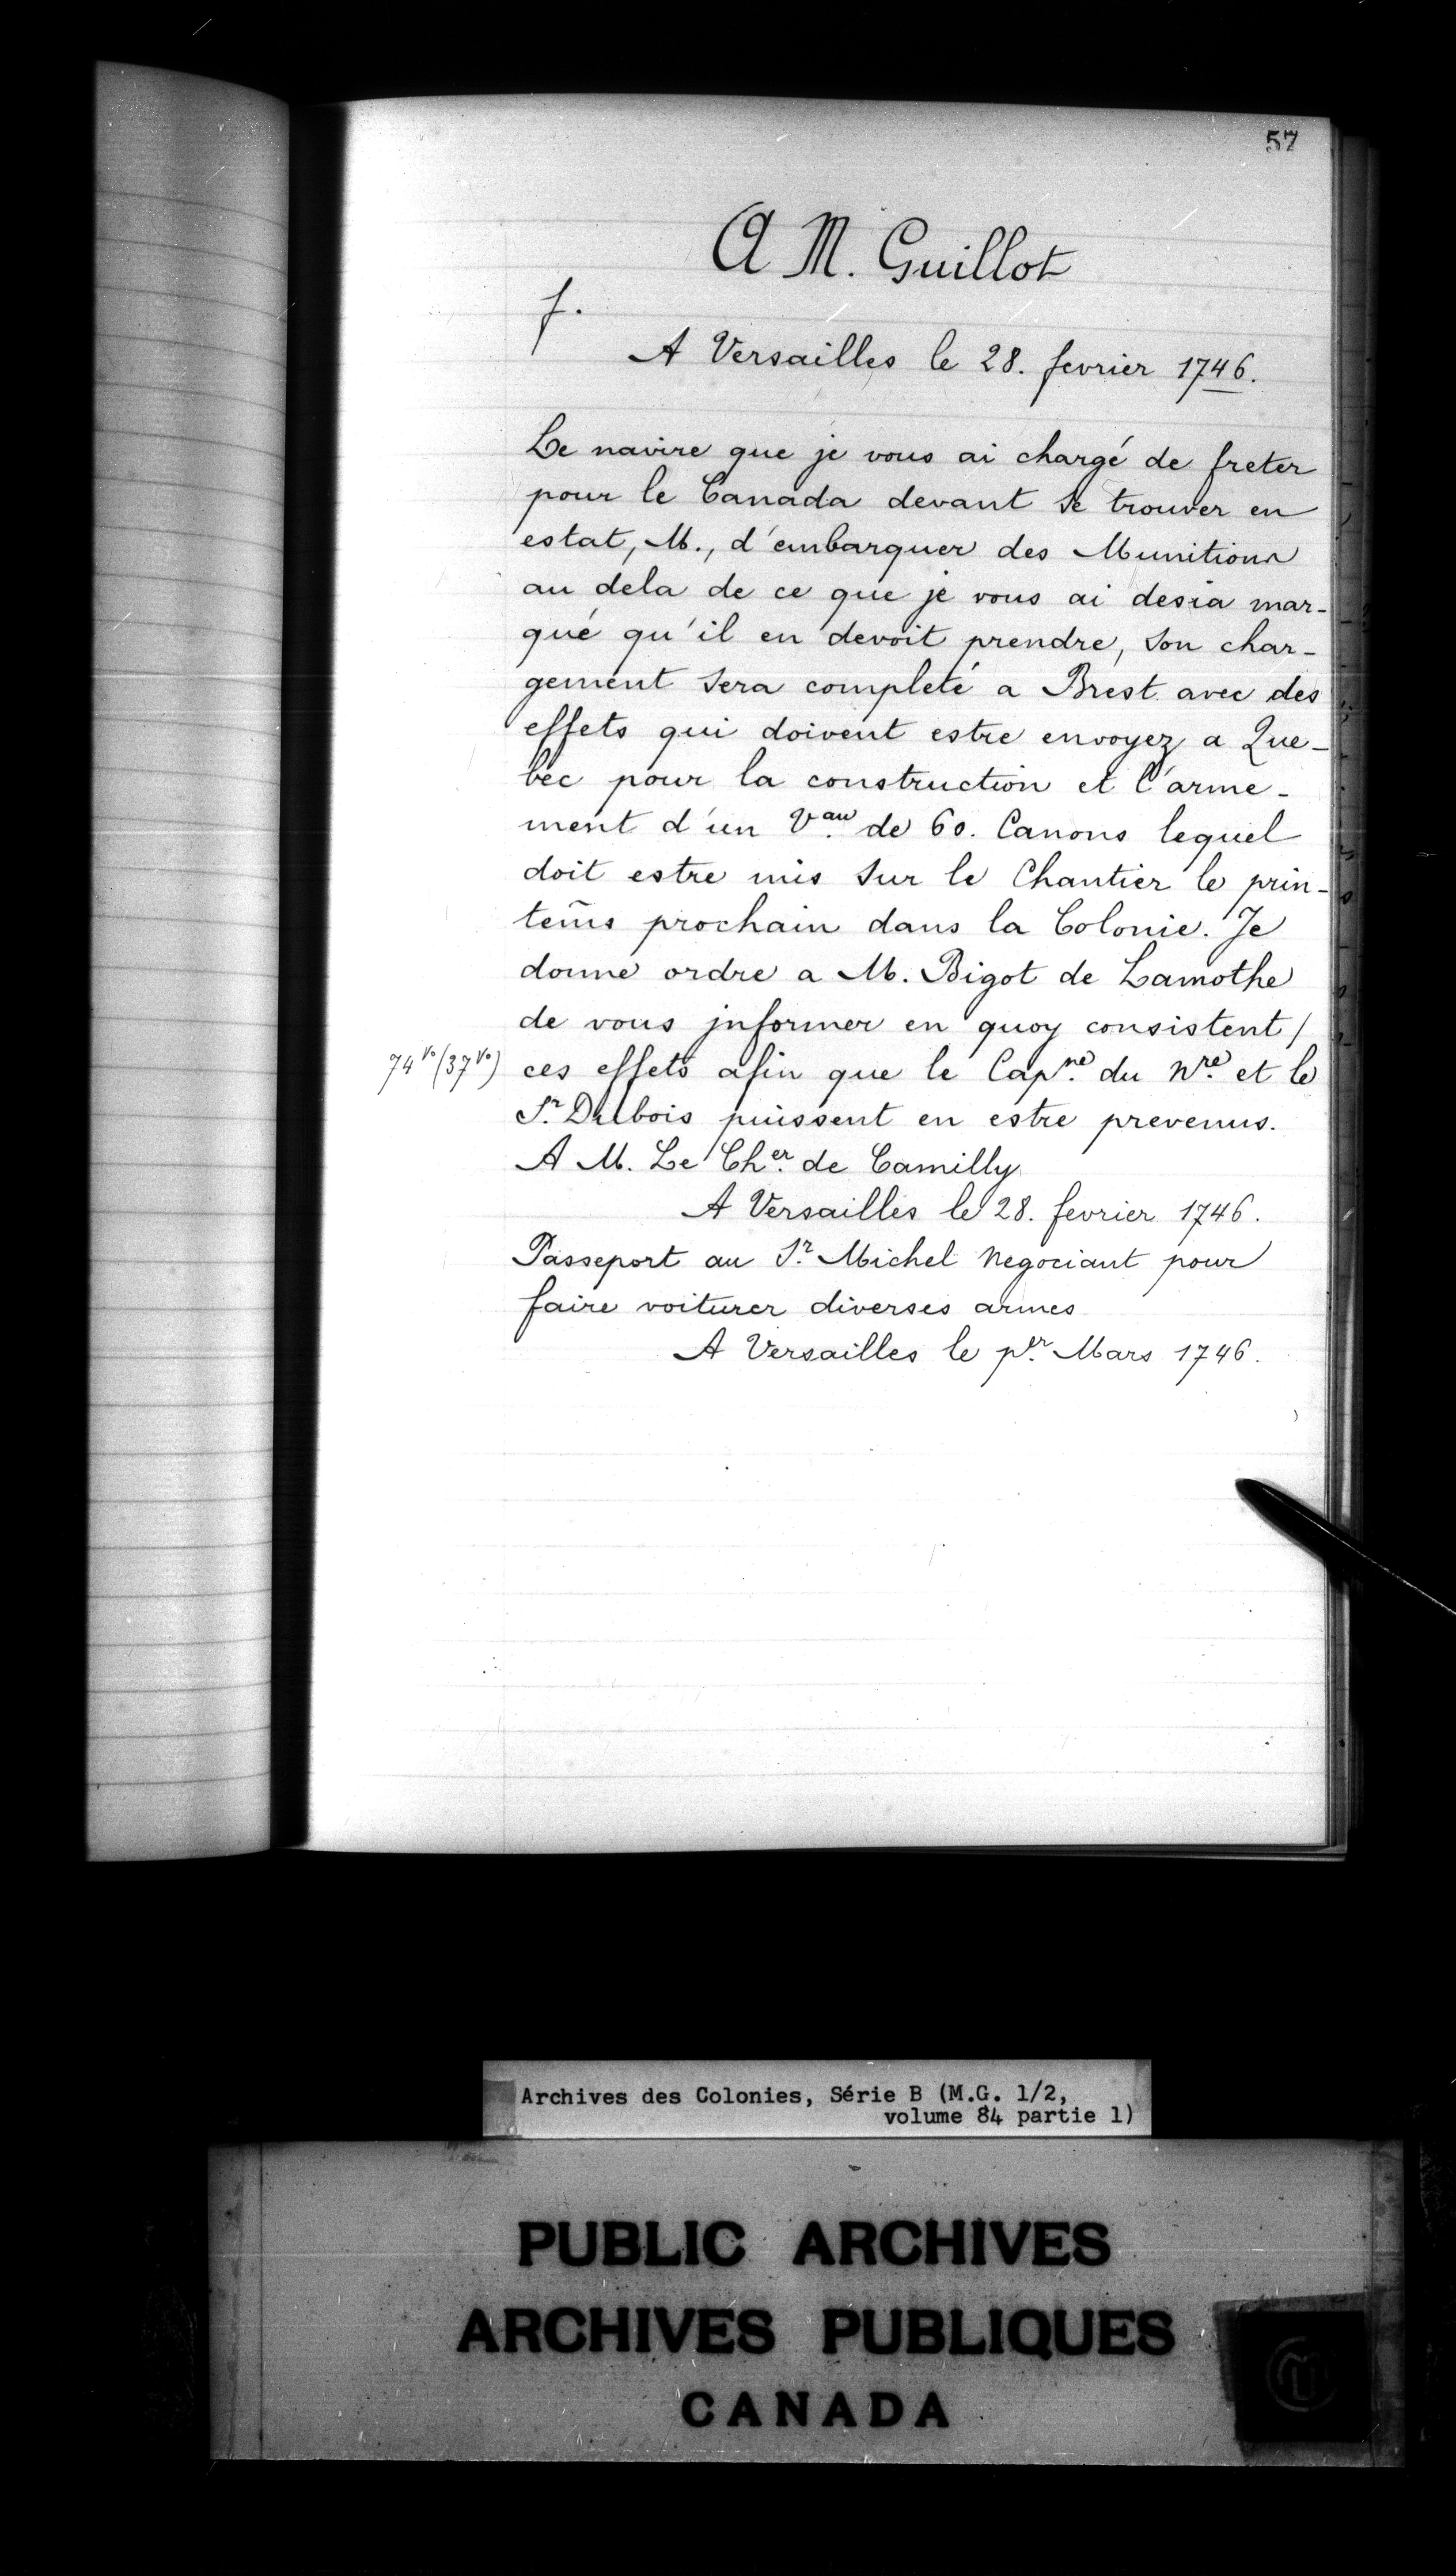 57
A M. Guillot
f.
A Versailles le 28. fevrier 1746.
Le navire que je vous ai chargé de freter
pour le Canada devant se trouver en
estat, M., d'embarquer des Munitions
au dela de ce que je vous ai desia mar-
qué qu'il en devoit prendre, son char-
gement sera completé a Brest avec des
effets qui doivent estre envoyez a Que-
bec pour la construction et l'arme-
ment d'un V.au de 60. Canons lequel
doit estre mis sur le Chantier le prin-
tem̃s prochain dans la Colonie. Je
donne ordre a M. Bigot de Lamothe
de vous jnformer en quoy consistent /
74 vo (37 vo) ces effets afin que le Cap.ne du N.re et le
S.r Dubois puissent en estre prevenus.
A M. Le Ch.er de Camilly
A Versailles le 28. fevrier 1746.
Passeport au S.r Michel Negociant pour
faire voiturer diverses armes
A Versailles le p.er Mars 1746.
Archives des Colonies, Série B (M.G. 1/2,
volume 84 partie 1)
PUBLIC ARCHIVES
ARCHIVES PUBLIQUES
CANADA